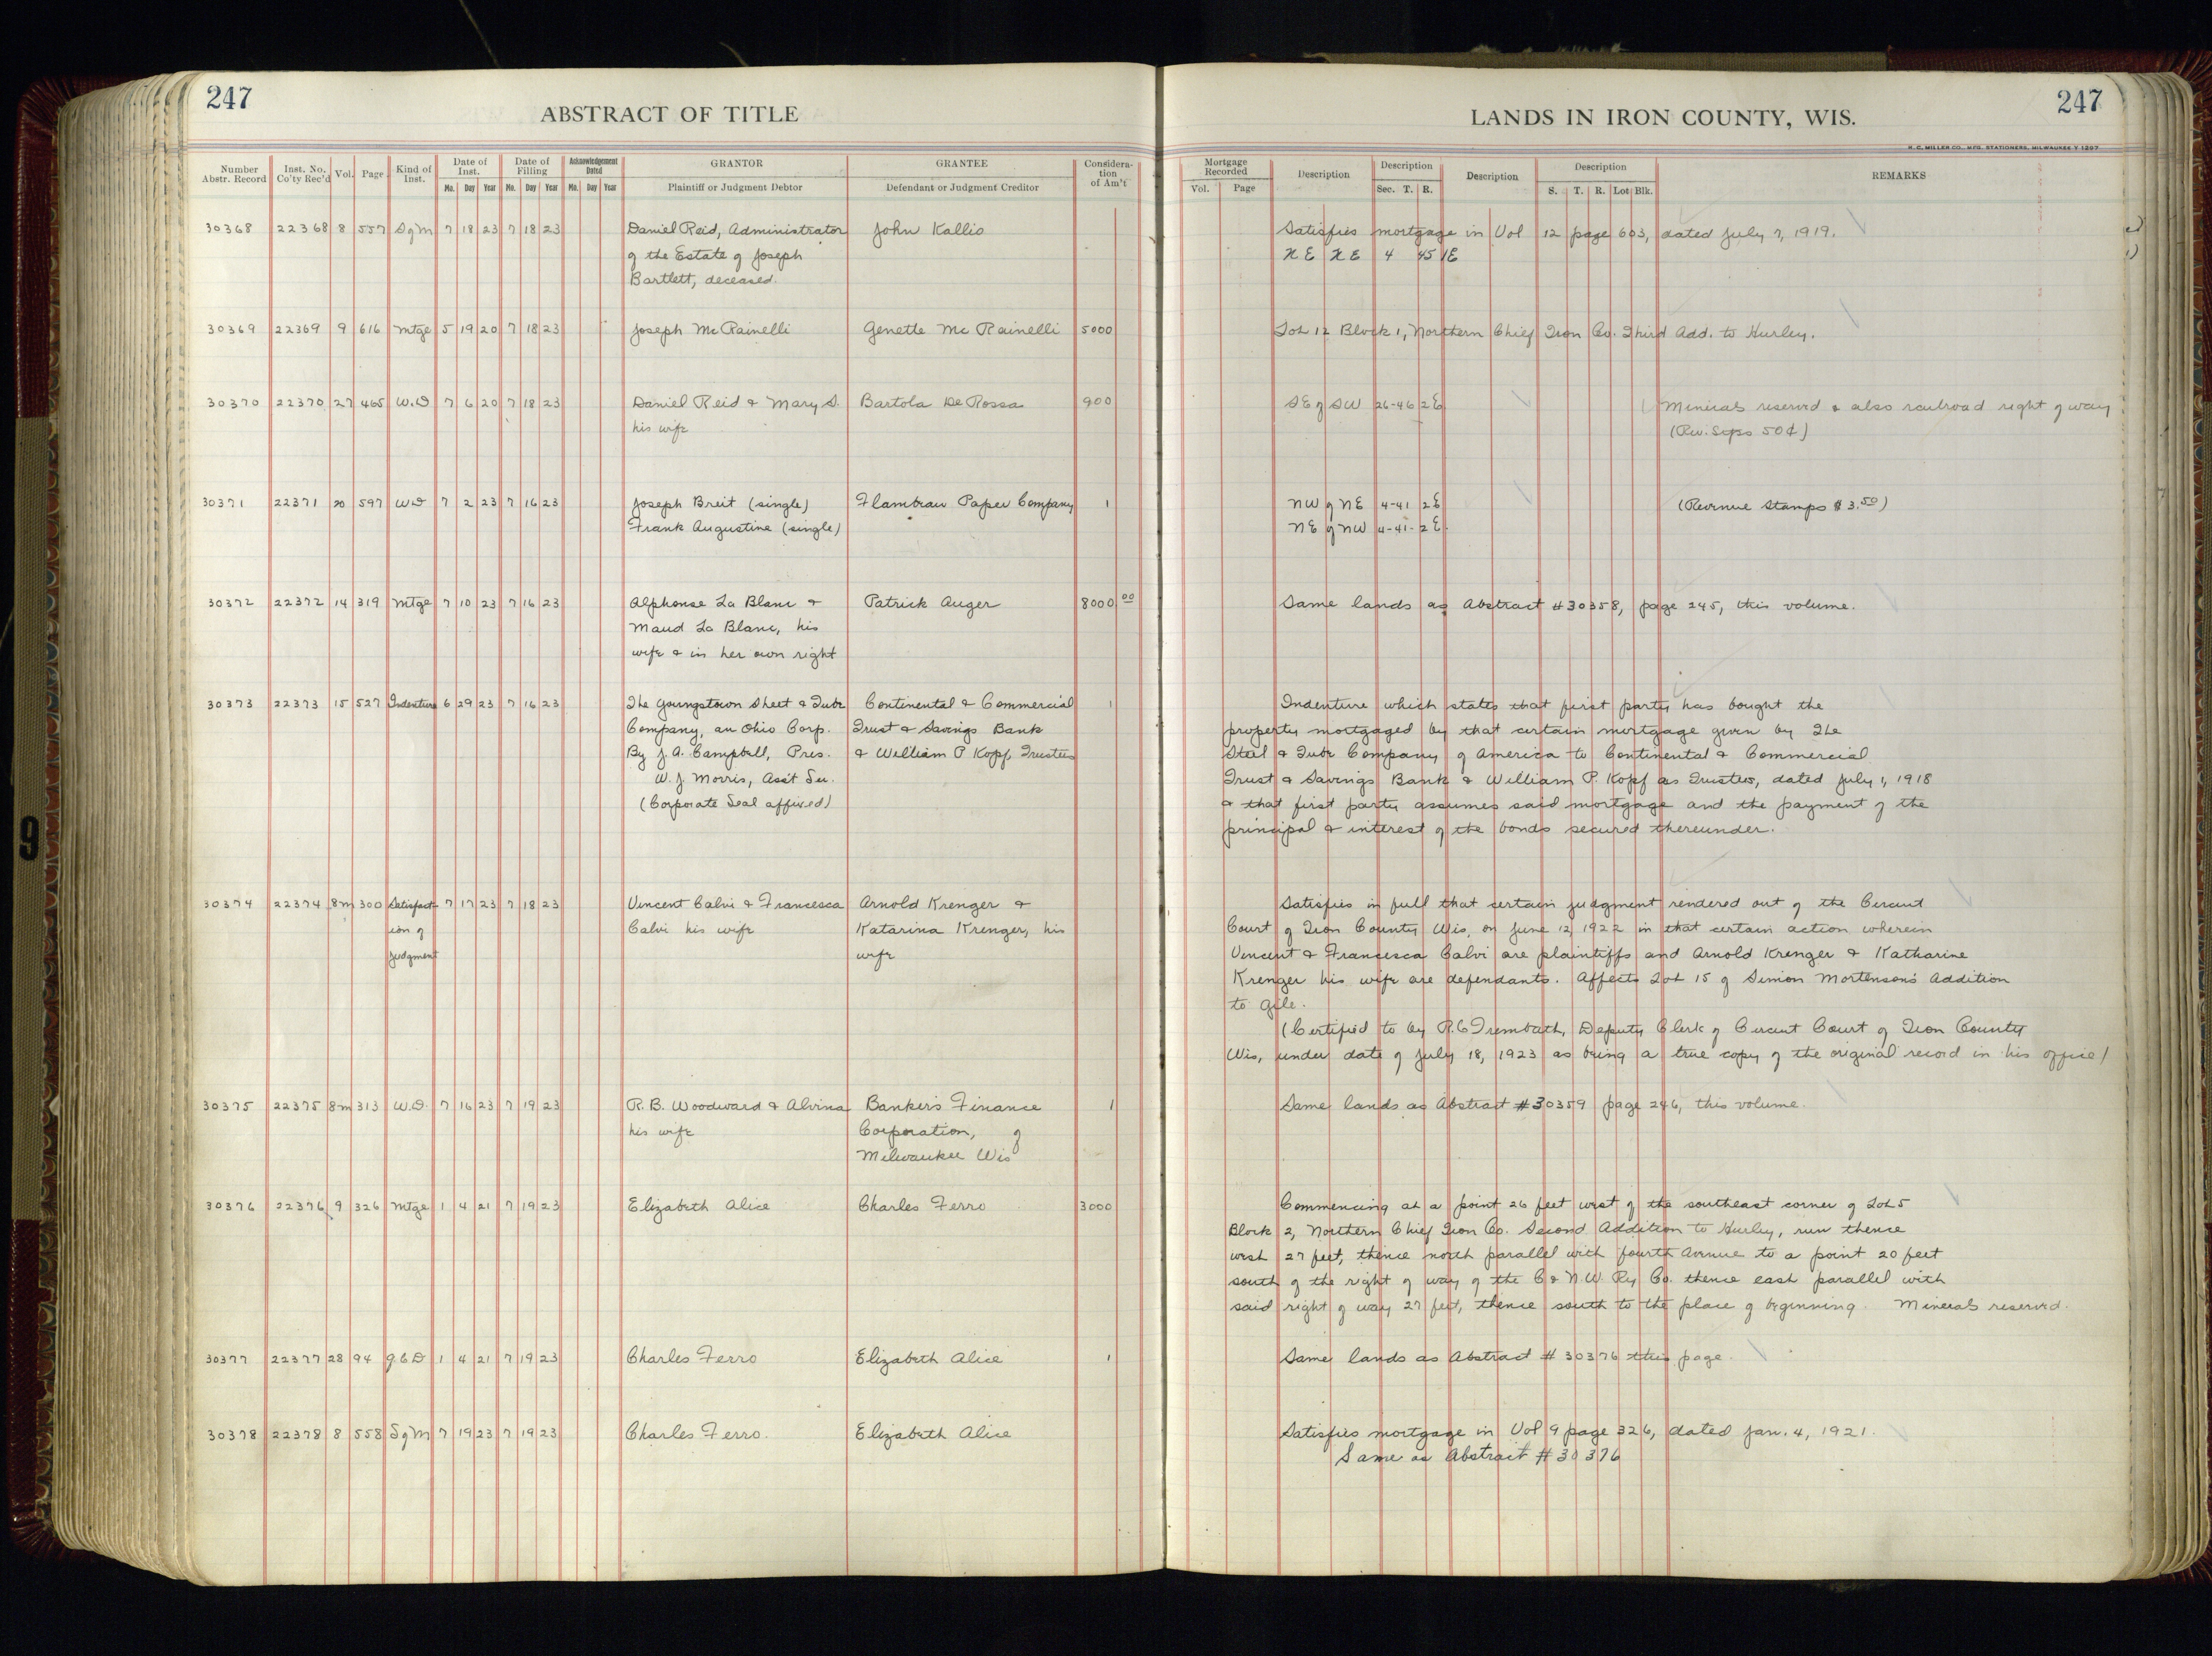 247
ABSTRACT OF TITLE
LANDS IN IRON COUNTY, WIS.
247
H. C. MILLER CO., MFG. STATIONERS, MILWAUKEE
Number Abstr. Record | Inst. No. Co'ty Rec'd | Vol. | Page | Kind of Inst. | Date of Inst. Mo. Day Year | Date of Filling Mo. Day Year | Acknowledgement Dated Mo. Day Year | GRANTOR Plaintiff or Judgment Debtor | GRANTEE Defendant or Judgment Creditor | Consideration of Am't | Mortgage Recorded Vol. Page | Description | Description Sec. T. R. | Description | Description S. T. R. Lot Blk. | REMARKS
30368 22368 8 557 S of M 7 18 23 7 18 23 Daniel Reid, Administrator John Kallio Satisfies mortgage in Vol 12 page 603, dated July 7, 1919.
of the Estate of Joseph NE NE 4 45 1E
Bartlett, deceased.
30369 22369 9 616 Mtge 5 19 20 7 18 23 Joseph McRainelli Genette Mc Rainelli 5000 Lot 12 Block 1, Northern Chief Iron Co. Third Add. to Hurley.
30370 22370 27 465 W.D 7 6 20 7 18 23 Daniel Reid & Mary S. Bartola De Rossa 900 SE of SW 26-46 2E Minerals reserved & also railroad right of way
his wife (Rev. Stps 50¢)
30371 22371 20 597 WD 7 2 23 7 16 23 Joseph Breit (single) Flambeau Paper Company 1 NW of NE 4-41 2E (Revenue Stamps $3.50)
Frank Augustine (single) NE of NW 4-41-2E.
30372 22372 14 319 Mtge 7 10 23 7 16 23 Alphonse La Blanc & Patrick Auger 8000.00 Same lands as Abstract #30358, page 245, this volume.
Maud La Blanc, his
wife & in her own right
30373 22373 15 527 Indenture 6 29 23 7 16 23 The Youngstown Sheet & Tube Continental & Commercial 1 Indenture which states that first party has bought the
Company, an Ohio Corp. Trust & Savings Bank property mortgaged by that certain mortgage given by The
By J. A. Campbell, Pres. & William P Kopf, Trustees Steel & Tube Company of America to Continental & Commercial
W. J. Morris, Ass't Sec. Trust & Savings Bank & William P. Kopf as Trustees, dated July 1, 1918
(Corporate Seal affixed) & that first party assumes said mortgage and the payment of the
principal & interest of the bonds secured thereunder.
30374 22374 8m 300 Satisfact- 7 17 23 7 18 23 Vincent Calvi & Francesca Arnold Krenger & Satisfies in full that certain judgment rendered out of the Circuit
ion of Calvi his wife Katarina Krenger, his Court of Iron County Wis, on June 12, 1922 in that certain action wherein
judgment wife Vincent & Francesca Calvi are plaintiffs and Arnold Krenger & Katharine
Krenger his wife are defendants. Affects Lot 15 of Simon Mortenson's Addition
to Gile.
(Certified to by R.C Trembath, Deputy Clerk of Circuit Court of Iron County
Wis, under date of July 18, 1923 as being a true copy of the original record in his office)
30375 22375 8m 313 W.D. 7 16 23 7 19 23 R. B. Woodward & Alvina Banker's Finance 1 Same lands as Abstract #30359 page 246, this volume.
his wife Corporation, of
Milwaukee Wis
30376 22376 9 326 Mtge 1 4 21 7 19 23 Elizabeth Alice Charles Ferro 3000 Commencing at a point 26 feet west of the southeast corner of Lot 5
Block 2, Northern Chief Iron Co. Second Addition to Hurley, run thence
west 27 feet, thence north parallel with fourth Avenue to a point 20 feet
south of the right of way of the C & N.W. Ry Co. thence east parallel with
said right of way 27 feet, thence south to the place of beginning. Minerals reserved.
30377 22377 28 94 Q.C.D 1 4 21 7 19 23 Charles Ferro Elizabeth Alice 1 Same lands as Abstract #30376 this page.
30378 22378 8 558 S of M 7 19 23 7 19 23 Charles Ferro. Elizabeth Alice Satisfies mortgage in Vol 9 page 326, dated Jan. 4, 1921.
Same as Abstract #30376
9